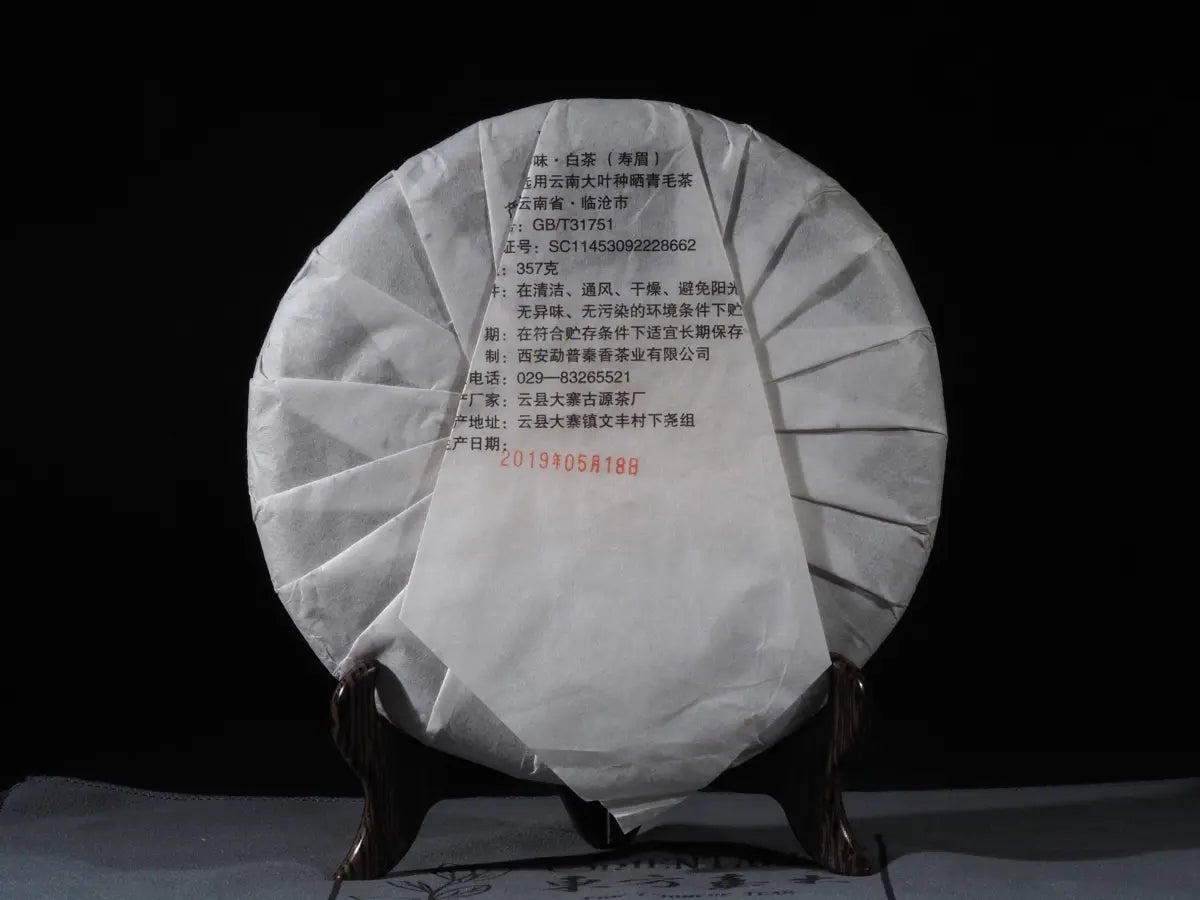 味·白茶（寿眉）
选用云南大叶种晒青毛茶
云南省·临沧市
号：GB/T31751
证号：SC11453092228662
：357克
件：在清洁、通风、干燥、避免阳光
无异味、无污染的环境条件下贮
期：在符合贮存条件下适宜长期保存
制：西安勐普秦香茶业有限公司
电话：029—83265521
产厂家：云县大寨古源茶厂
产地址：云县大寨镇文丰村下尧组
生产日期：
2019年05月18日